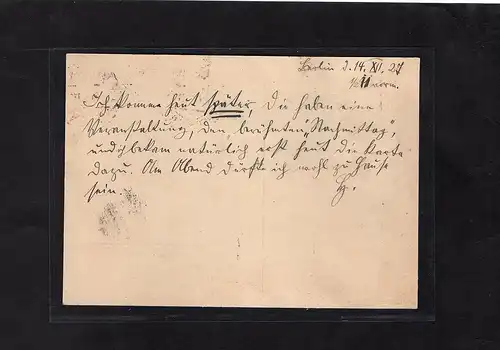 Berlin d. 14. XI. 27
1/2 11 vorm.
Ich komme heut später, die haben eine
Veranstaltung, den berühmten "Nachmittag",
und ich bekam natürlich erst heut die Karte
dazu. Am Abend dürfte ich wohl zu Hause
sein. Hz.